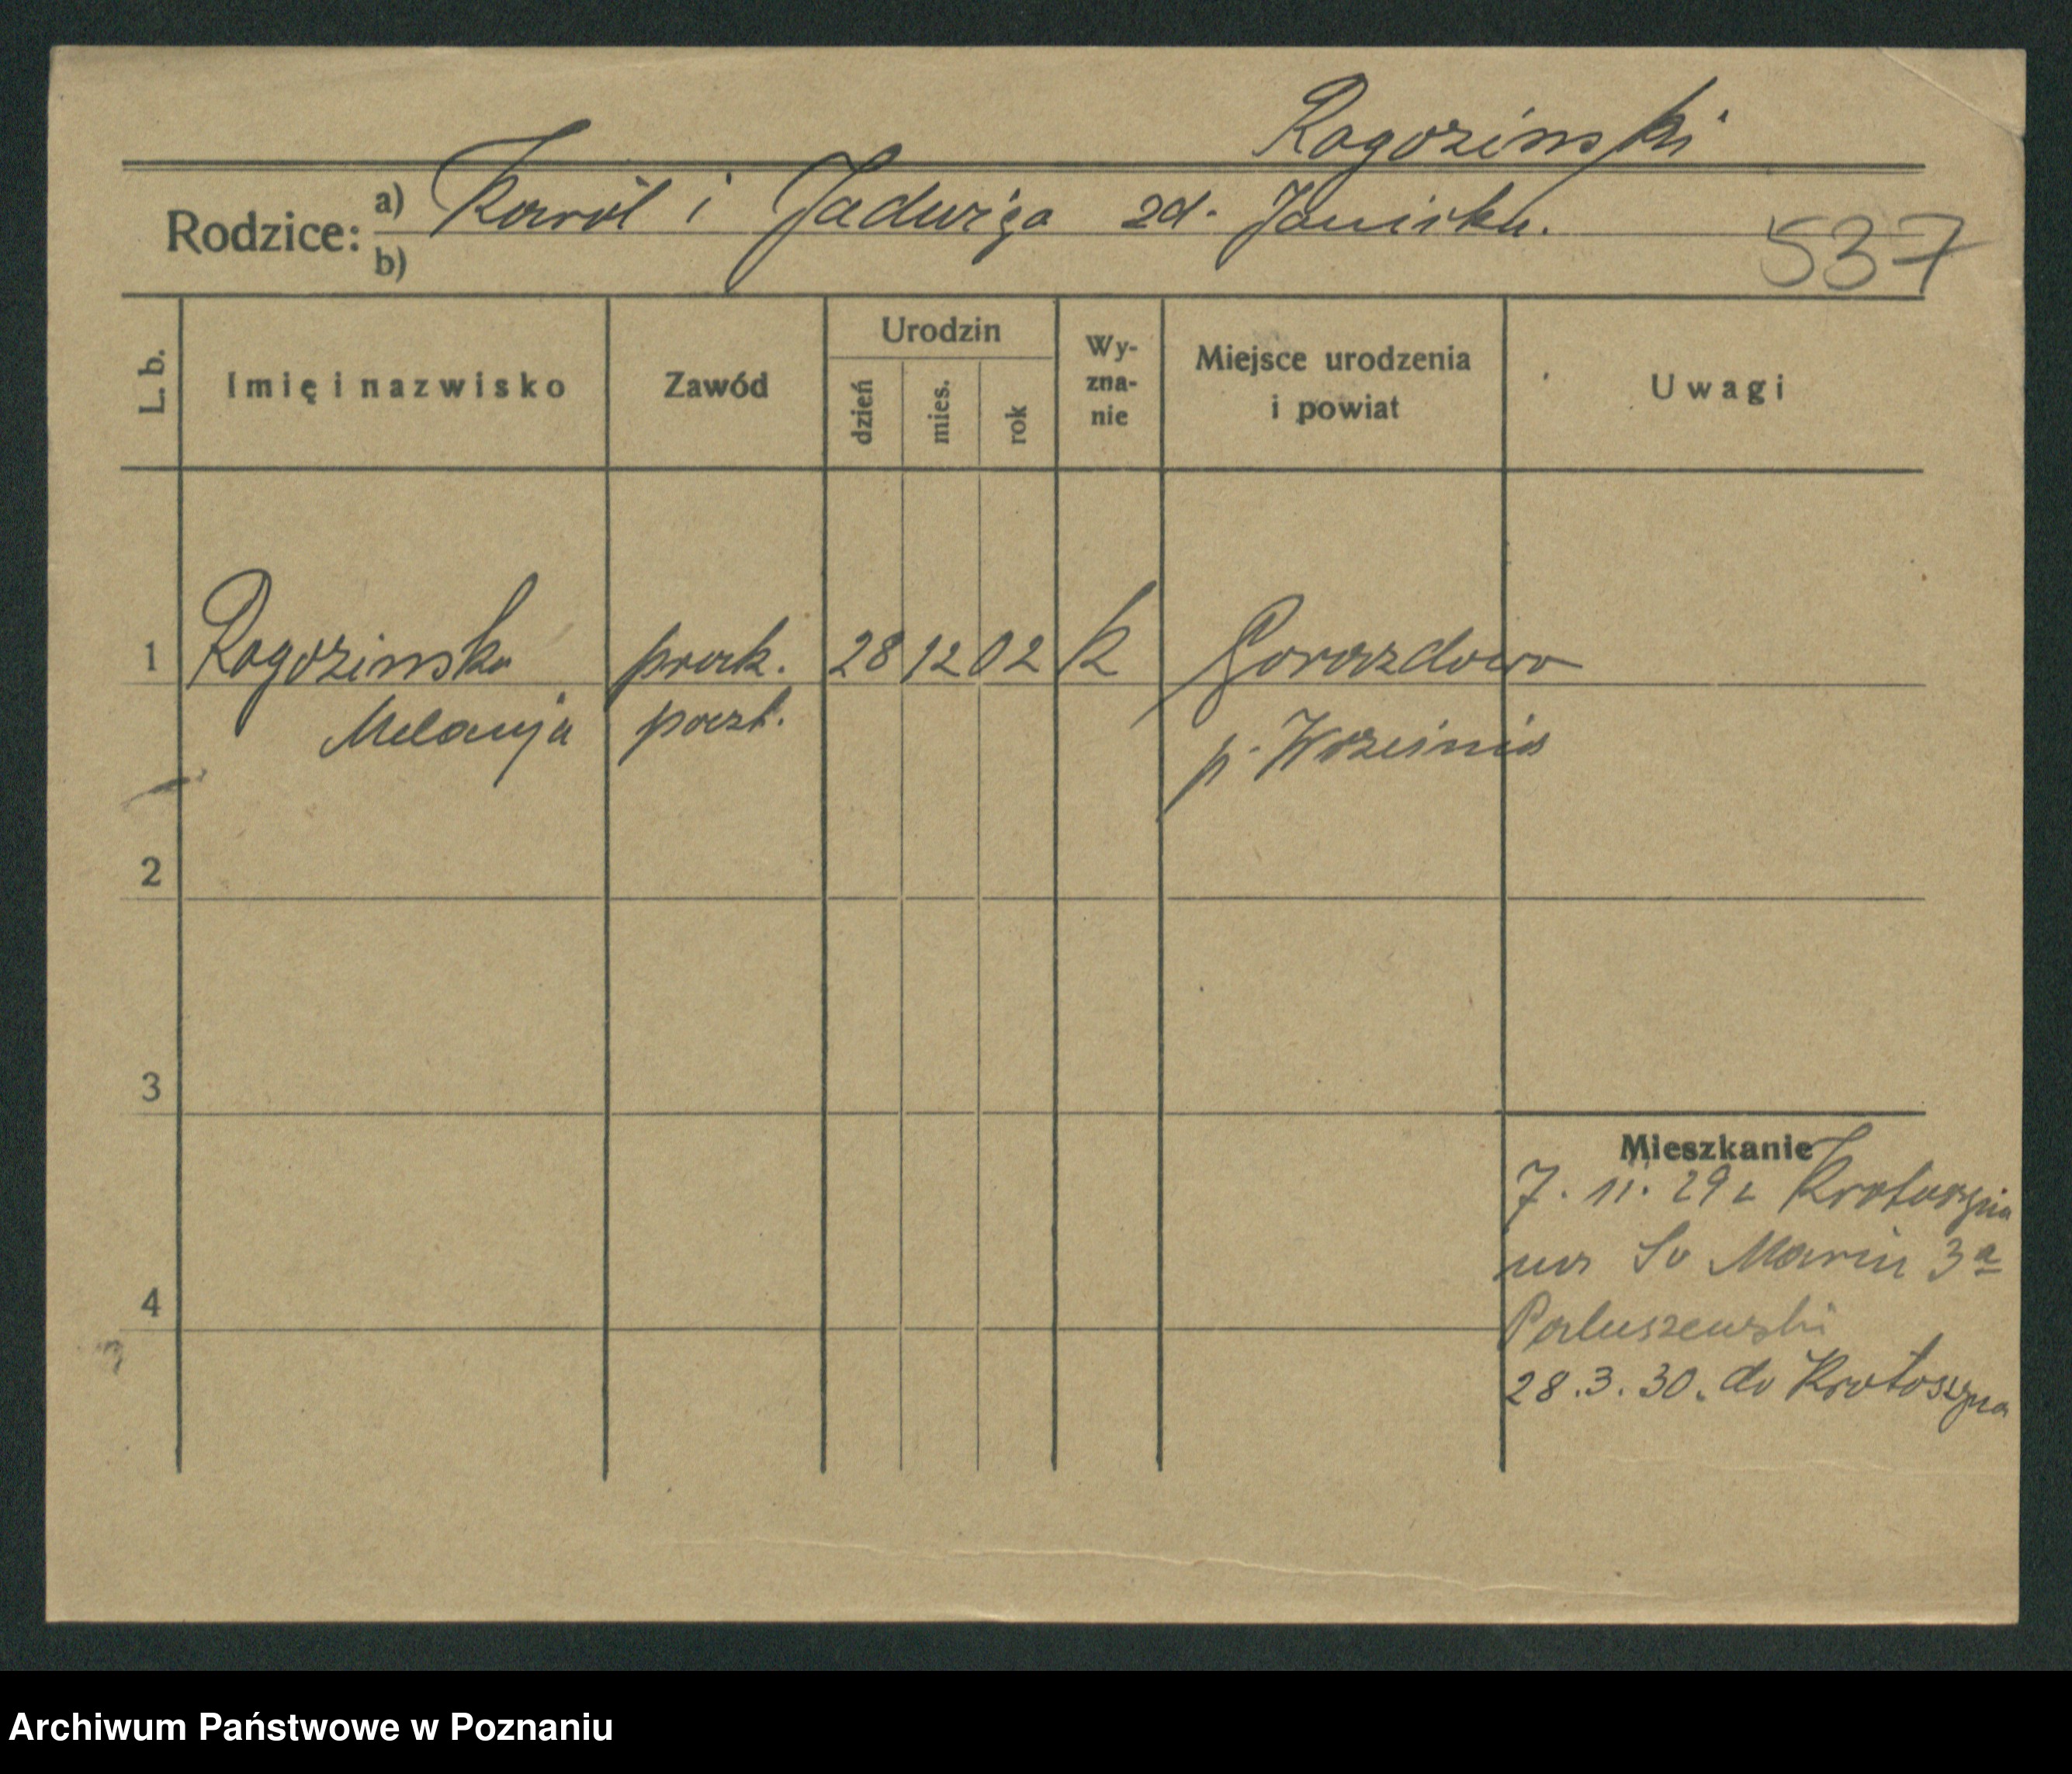 Rogozinski
Rodzice: a) Karol i Jadwiga zd. Janiska.
b)
537
L. b.
Imię i nazwisko
Zawód
Urodzin
dzień
mies.
rok
Wy-
zna-
nie
Miejsce urodzenia
i powiat
Uwagi
1 Rogozinska prak. 28 12 02 k Gorazdowo
Melanja poczt. p. Wrzesinia
2
3
4
Mieszkanie
7. 11. 29 z Krotoszyna
na Sv Marcin 3a
Paluszewski
28. 3. 30. do Krotoszyna
Archiwum Państwowe w Poznaniu